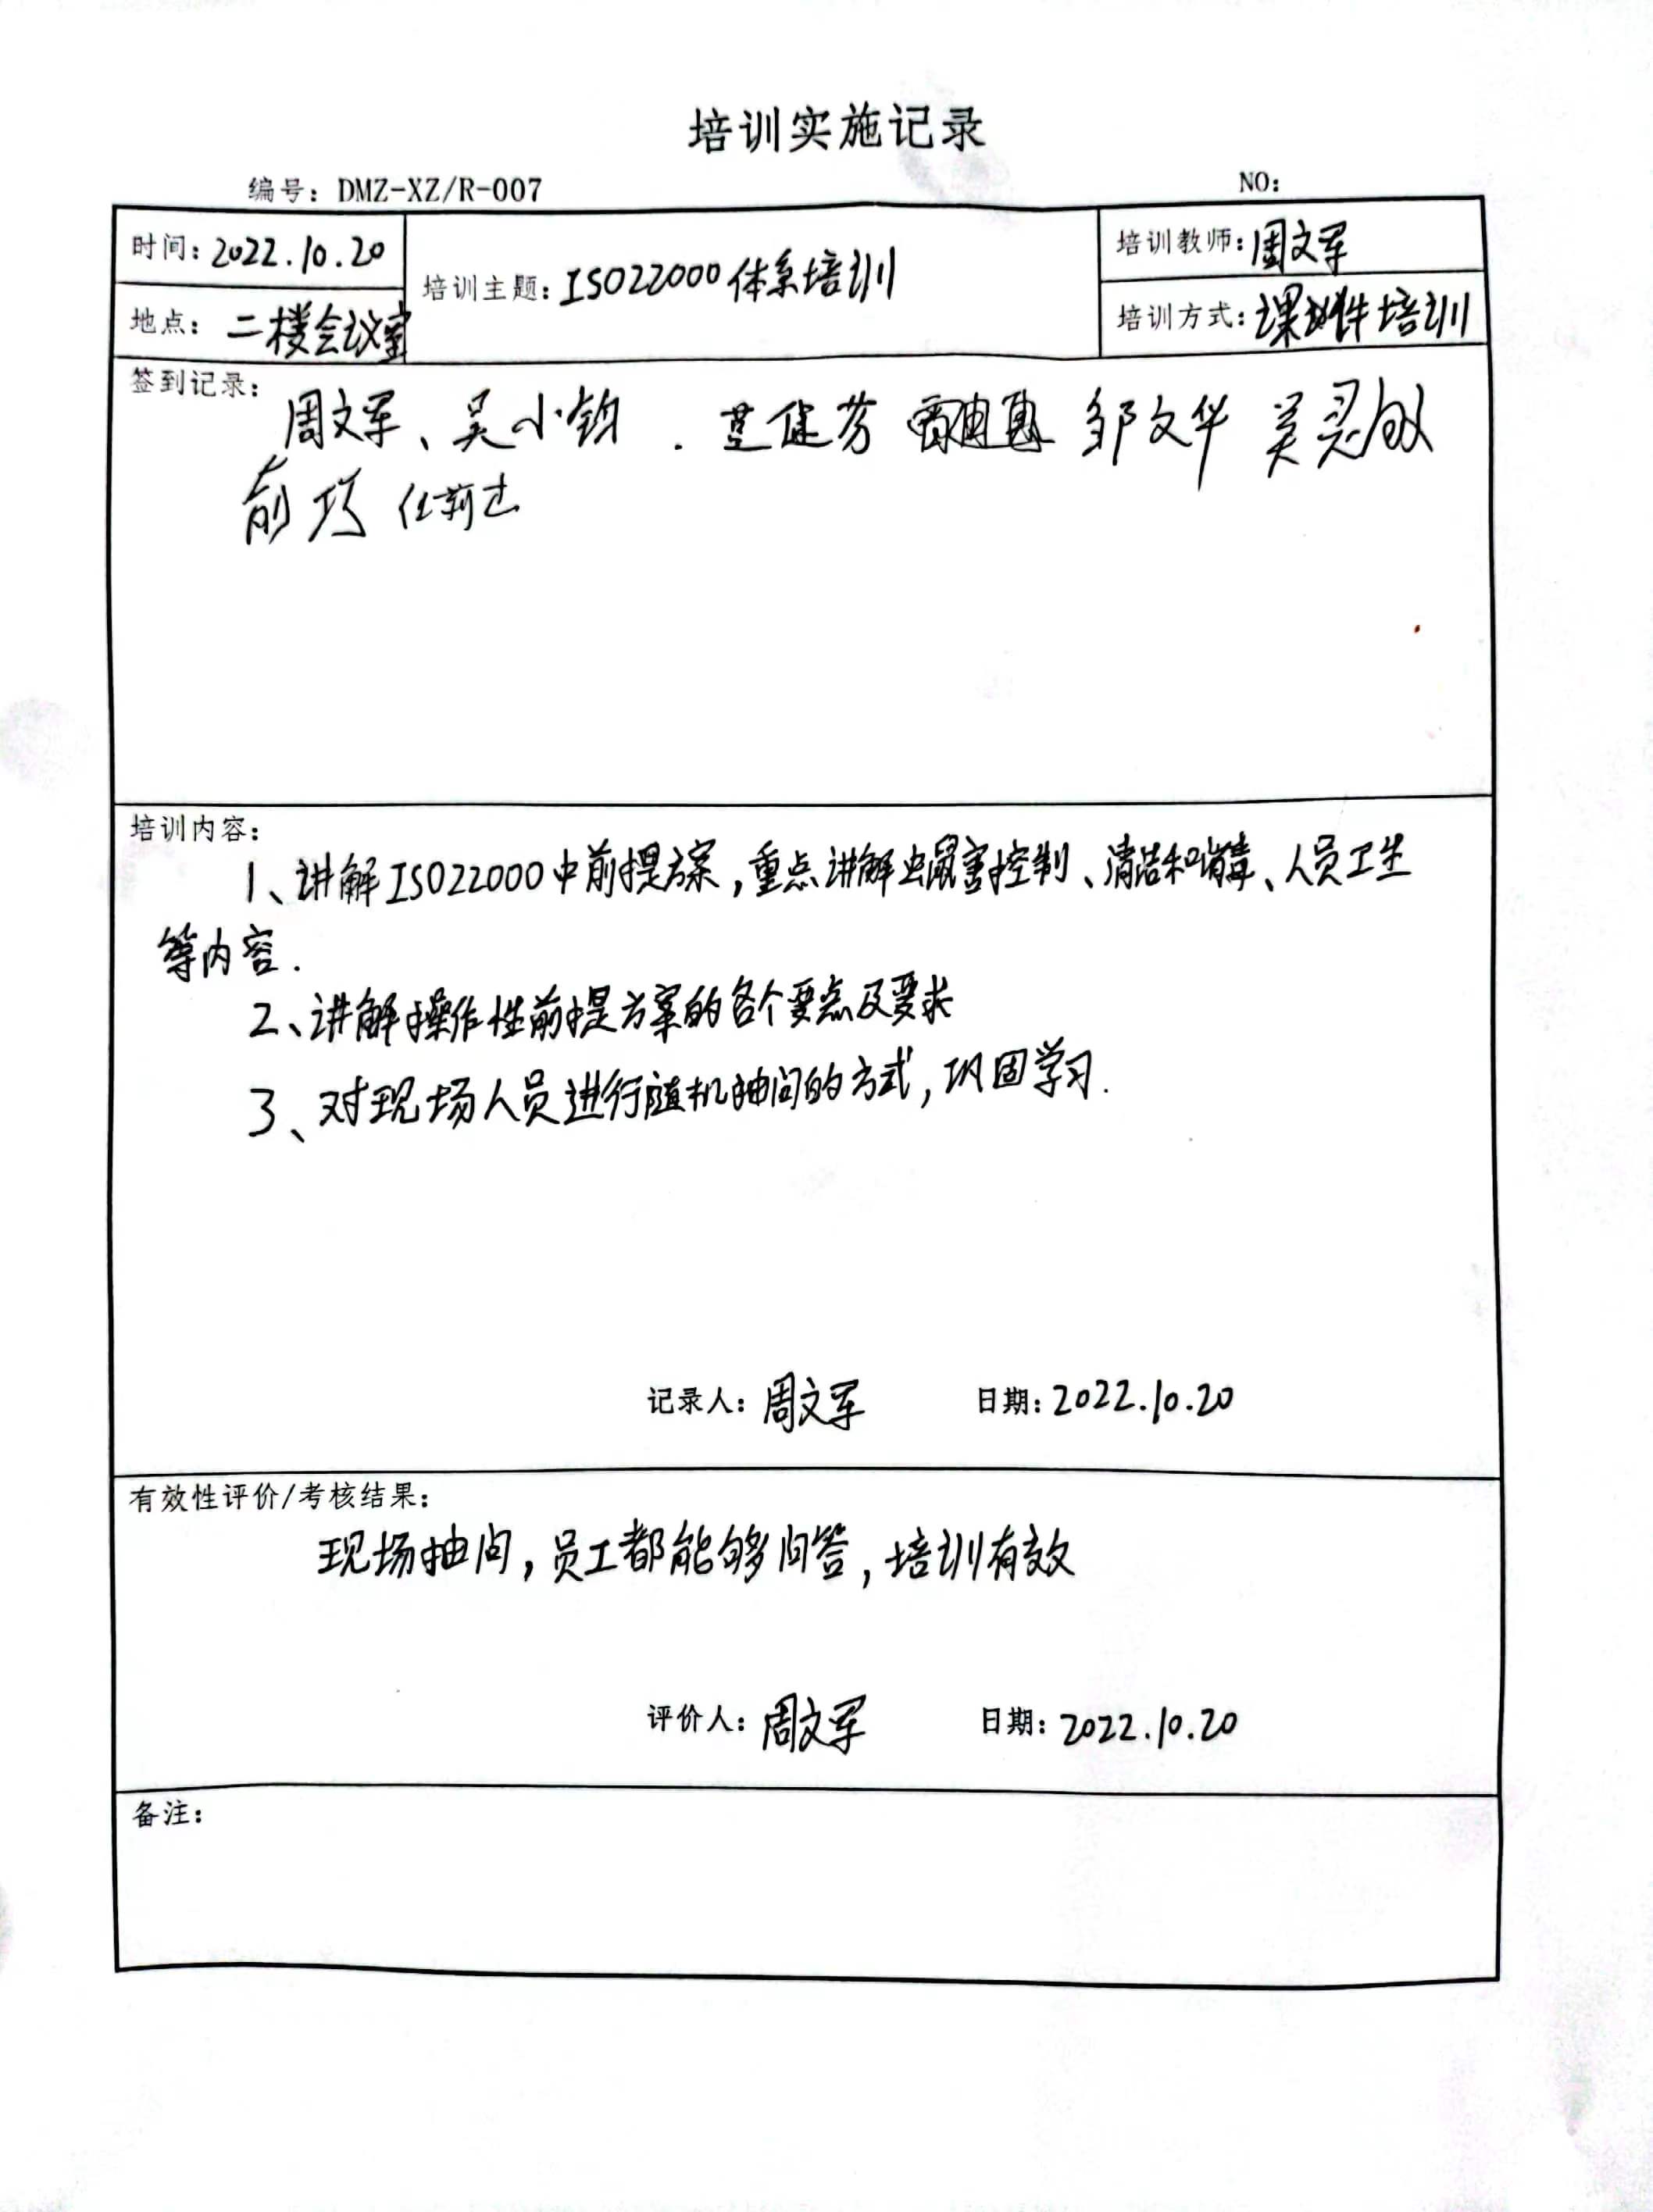 培训实施记录
编号：DMZ-XZ/R-007 NO：
时间：2022.10.20
培训主题：ISO22000体系培训
培训教师：周文军
地点：二楼会议室
培训方式：课件培训
签到记录：
周文军、吴小钧 . 健芬 邹文华 吴灵敏
俞巧
培训内容：
1、讲解ISO22000中前提方案，重点讲解虫鼠害控制、清洁和消毒、人员卫生
等内容.
2、讲解操作性前提方案的各个要点及要求
3、对现场人员进行随机抽问的方式，巩固学习.
记录人：周文军 日期：2022.10.20
有效性评价/考核结果：
现场抽问，员工都能够回答，培训有效
评价人：周文军 日期：2022.10.20
备注：